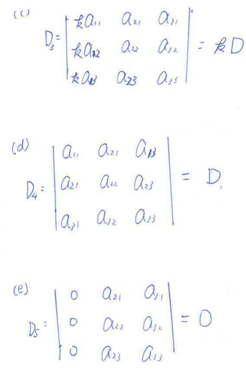 (c)
D₃ = | ka₁₁ a₂₁ a₃₁ |
| ka₁₂ a₂₂ a₃₂ | = kD
| ka₁₃ a₂₃ a₃₃ |
(d)
D₄ = | a₁₁ a₂₁ a₁₃ |
| a₂₁ a₂₂ a₂₃ | = D,
| a₃₁ a₃₂ a₃₃ |
(e)
D₅ = | 0 a₂₁ a₃₁ |
| 0 a₂₂ a₃₂ | = 0
| 0 a₂₃ a₃₃ |